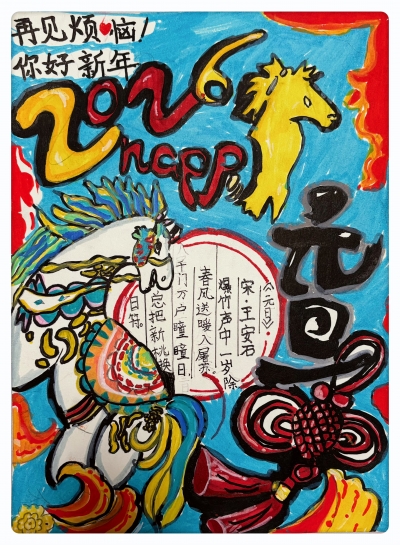 再见烦恼!
你好新年
2026
happy
元旦
《元日》
宋·王安石
爆竹声中一岁除
春风送暖入屠苏.
千门万户瞳瞳日.
总把新桃换
旧符。